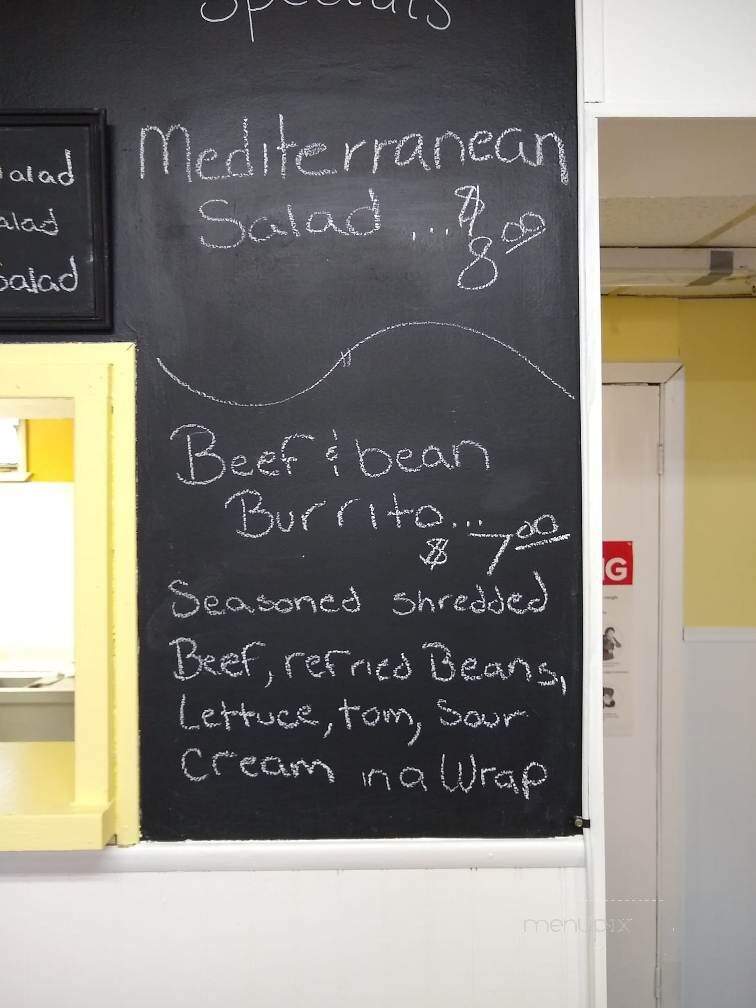 Specials
Mediterranean
Salad ... $8.00
Beef & bean
Burrito... $7.00
Seasoned shredded
Beef, refried Beans,
Lettuce, tom, Sour
Cream in a Wrap
alad
alad
Salad
NG
menupix